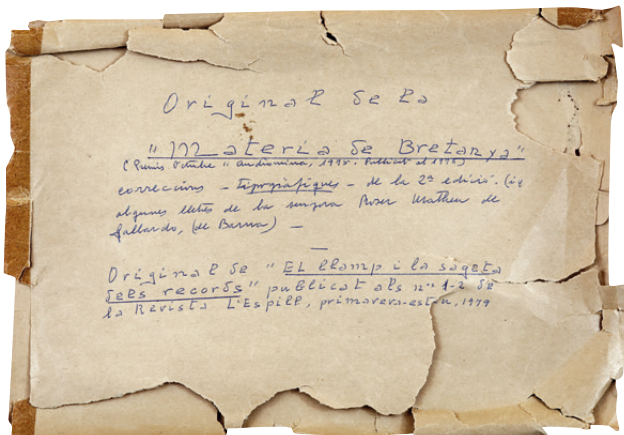 Original de la
"Materia de Bretanya"
(Premis Octubre "Andròmina, 1975. Publicat el 1976)
correccions - tipogràfiques - de la 2ª edició. (i
algunes lletres de la senyora Roser Matheu de
Gallardo, (de Barna) -
Original de "El llamp i la sageta
dels records" publicat als nº 1-2 de
la Revista L'Espill, primavera-estiu, 1979